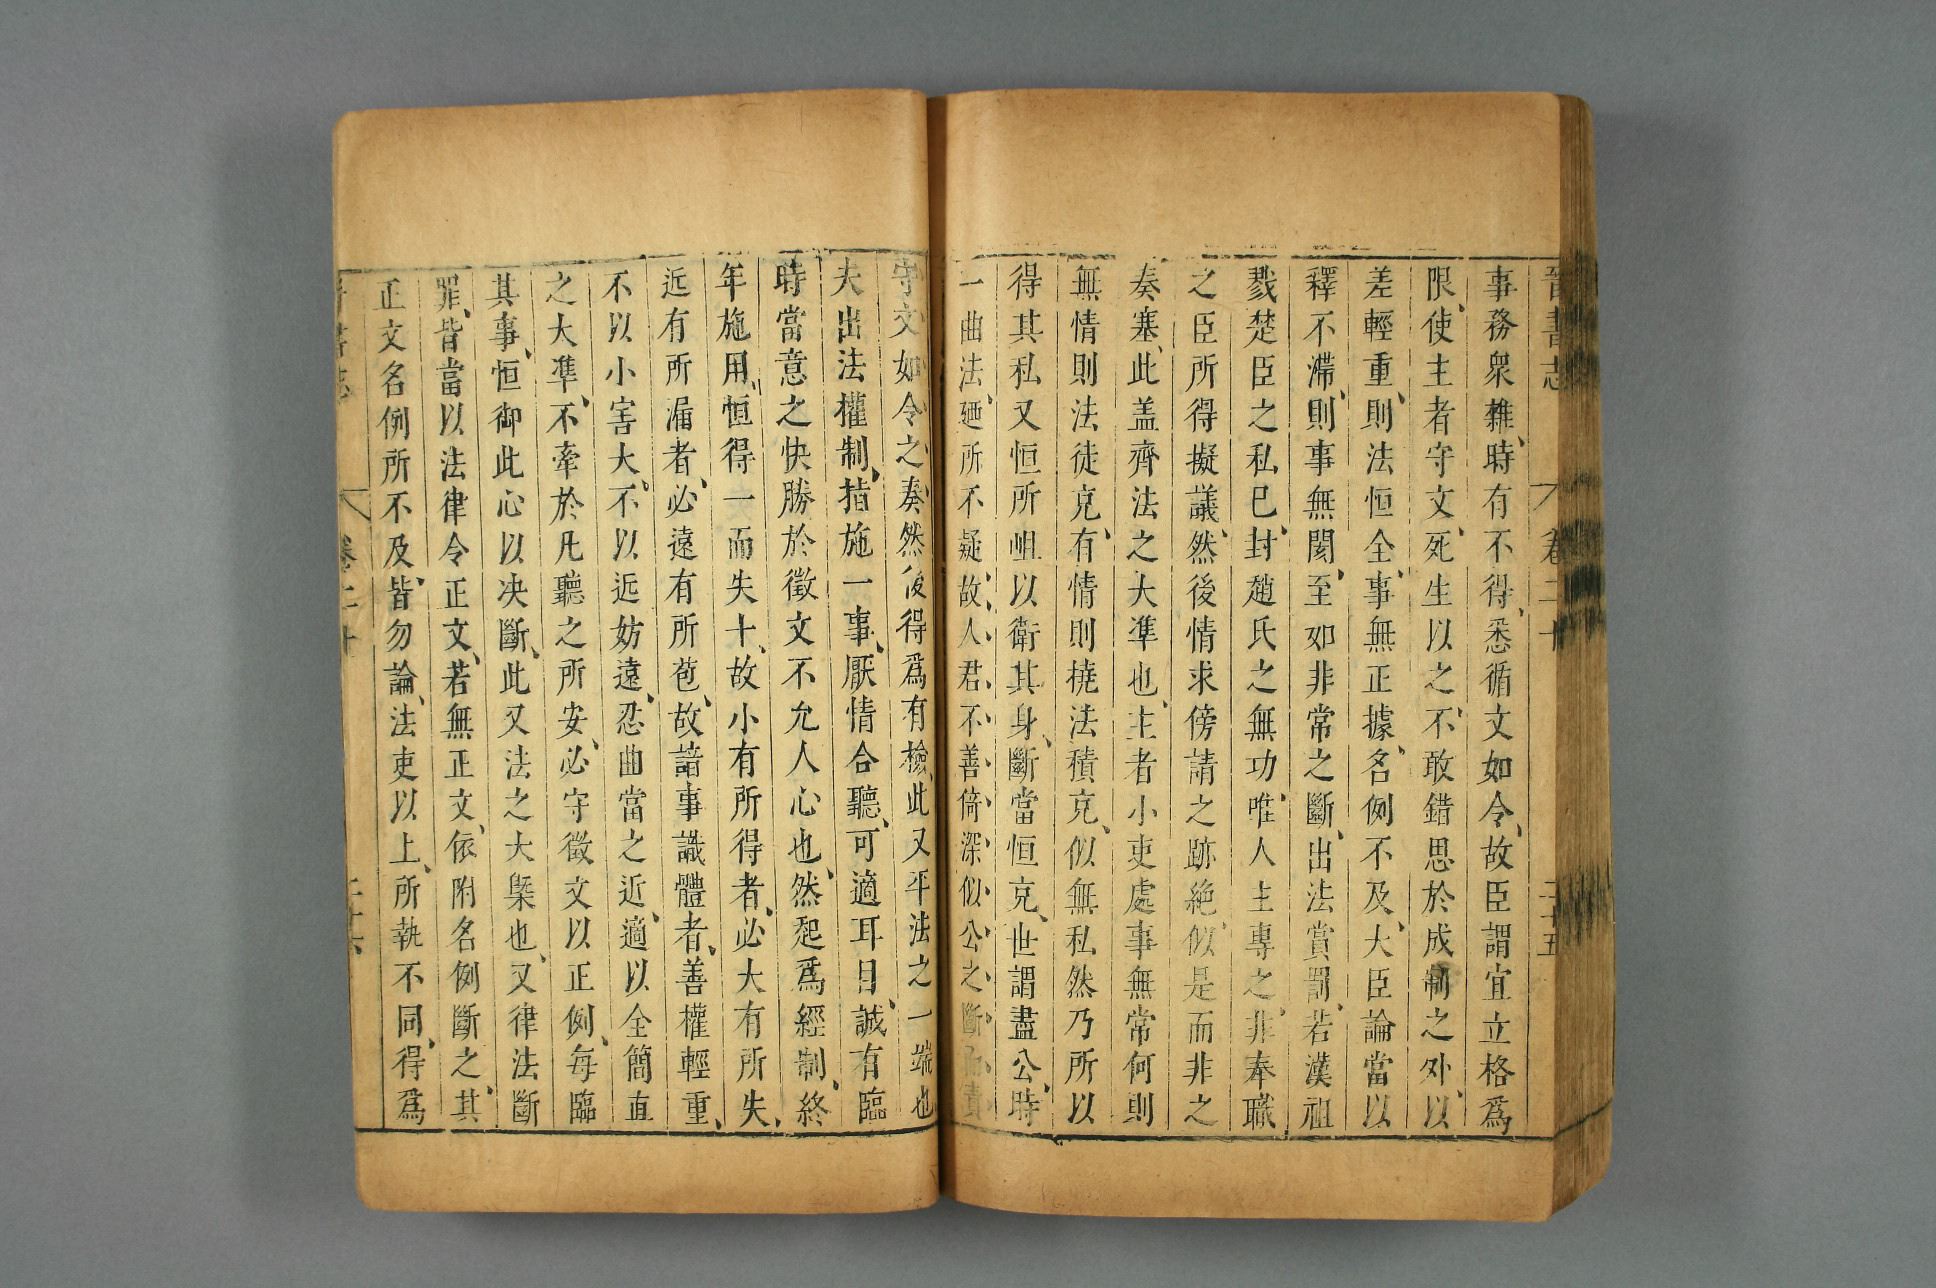 晉書志 卷二十 二十五
事務衆雜時有不得悉循文如令故臣謂宜立格爲
限使主者守文死生以之不敢錯思於成制之外以
差輕重則法恒全事無正據名例不及大臣論當以
釋不滯則事無閡至如非常之斷出法賞罰若漢祖
戮楚臣之私已封趙氏之無功唯人主專之非奉職
之臣所得擬議然後情求傍請之跡絶似是而非之
奏塞此盖齊法之大凖也主者小吏處事無常何則
無情則法徒克有情則撓法積克似無私然乃所以
得其私又恒所岨以衛其身斷當恒克世謂盡公時
一曲法廼所不疑故人君不善倚深似公之斷而責
守文如令之奏然後得爲有檢此又平法之一端也
夫出法權制指施一事厭情合聽可適耳目誠有臨
時當意之快勝於徵文不允人心也然起爲經制終
年施用恒得一而失十故小有所得者必大有所失
近有所漏者必遠有所苞故諳事識體者善權輕重
不以小害大不以近妨遠忍曲當之近適以全簡直
之大凖不牽於凡聽之所安必守徵文以正例每臨
其事恒御此心以决斷此又法之大槩也又律法斷
罪皆當以法律令正文若無正文依附名例斷之其
正文名例所不及皆勿論法吏以上所執不同得爲
卷二十